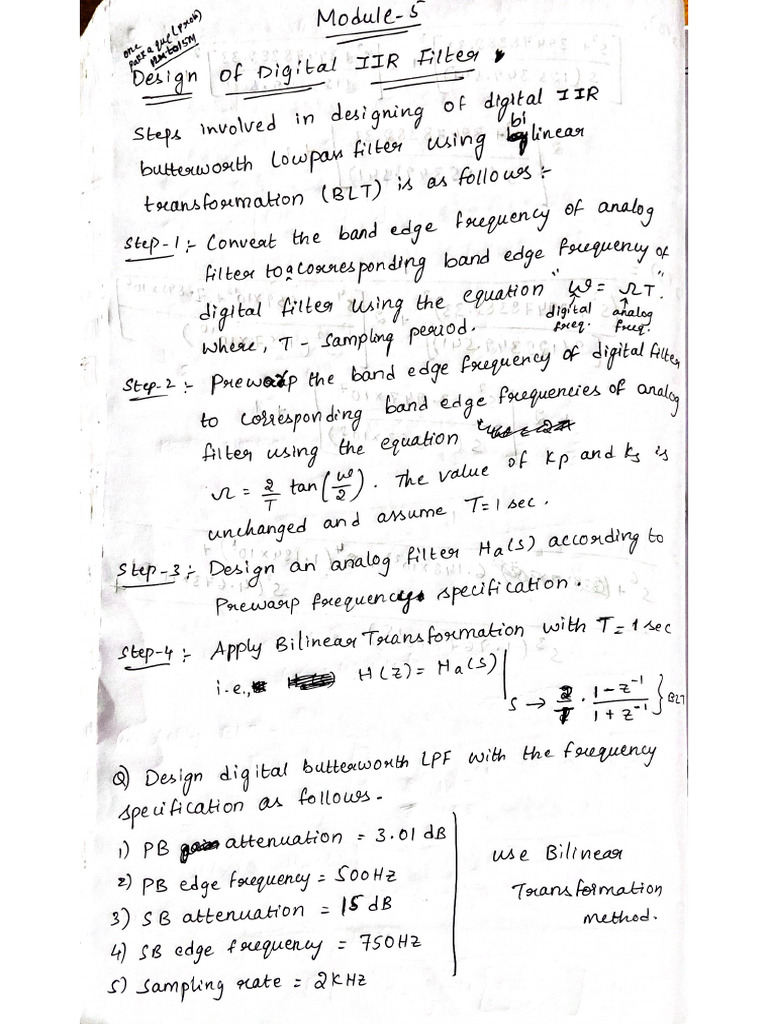 Module-5
one
part a que (prob)
10m to 15M
Design Of Digital IIR Filter
Steps involved in designing of digital IIR
butterworth Lowpass filter using bilinear
transformation (BLT) is as follows :-
Step-1 :- Convert the band edge frequency of analog
filter to a corresponding band edge frequency of
digital filter using the equation "ω = ΩT".
digital freq. analog freq.
where, T - Sampling period.
Step-2 :- Prewarp the band edge frequency of digital filter
to corresponding band edge frequencies of analog
filter using the equation
Ω = 2/T tan(ω/2). The value of Kp and Ks is
unchanged and assume T=1 sec.
Step-3 :- Design an analog filter Ha(s) according to
Prewarp frequency specification.
Step-4 :- Apply Bilinear Transformation with T=1 sec
i.e., H(z) = Ha(s)|
s → 2/T . 1-z⁻¹/1+z⁻¹ } BLT
Q) Design digital butterworth LPF with the frequency
specification as follows.
1) PB attenuation = 3.01 dB
2) PB edge frequency = 500Hz
3) SB attenuation = 15 dB
4) SB edge frequency = 750HZ
5) Sampling rate = 2KHZ
use Bilinear
Transformation
method.